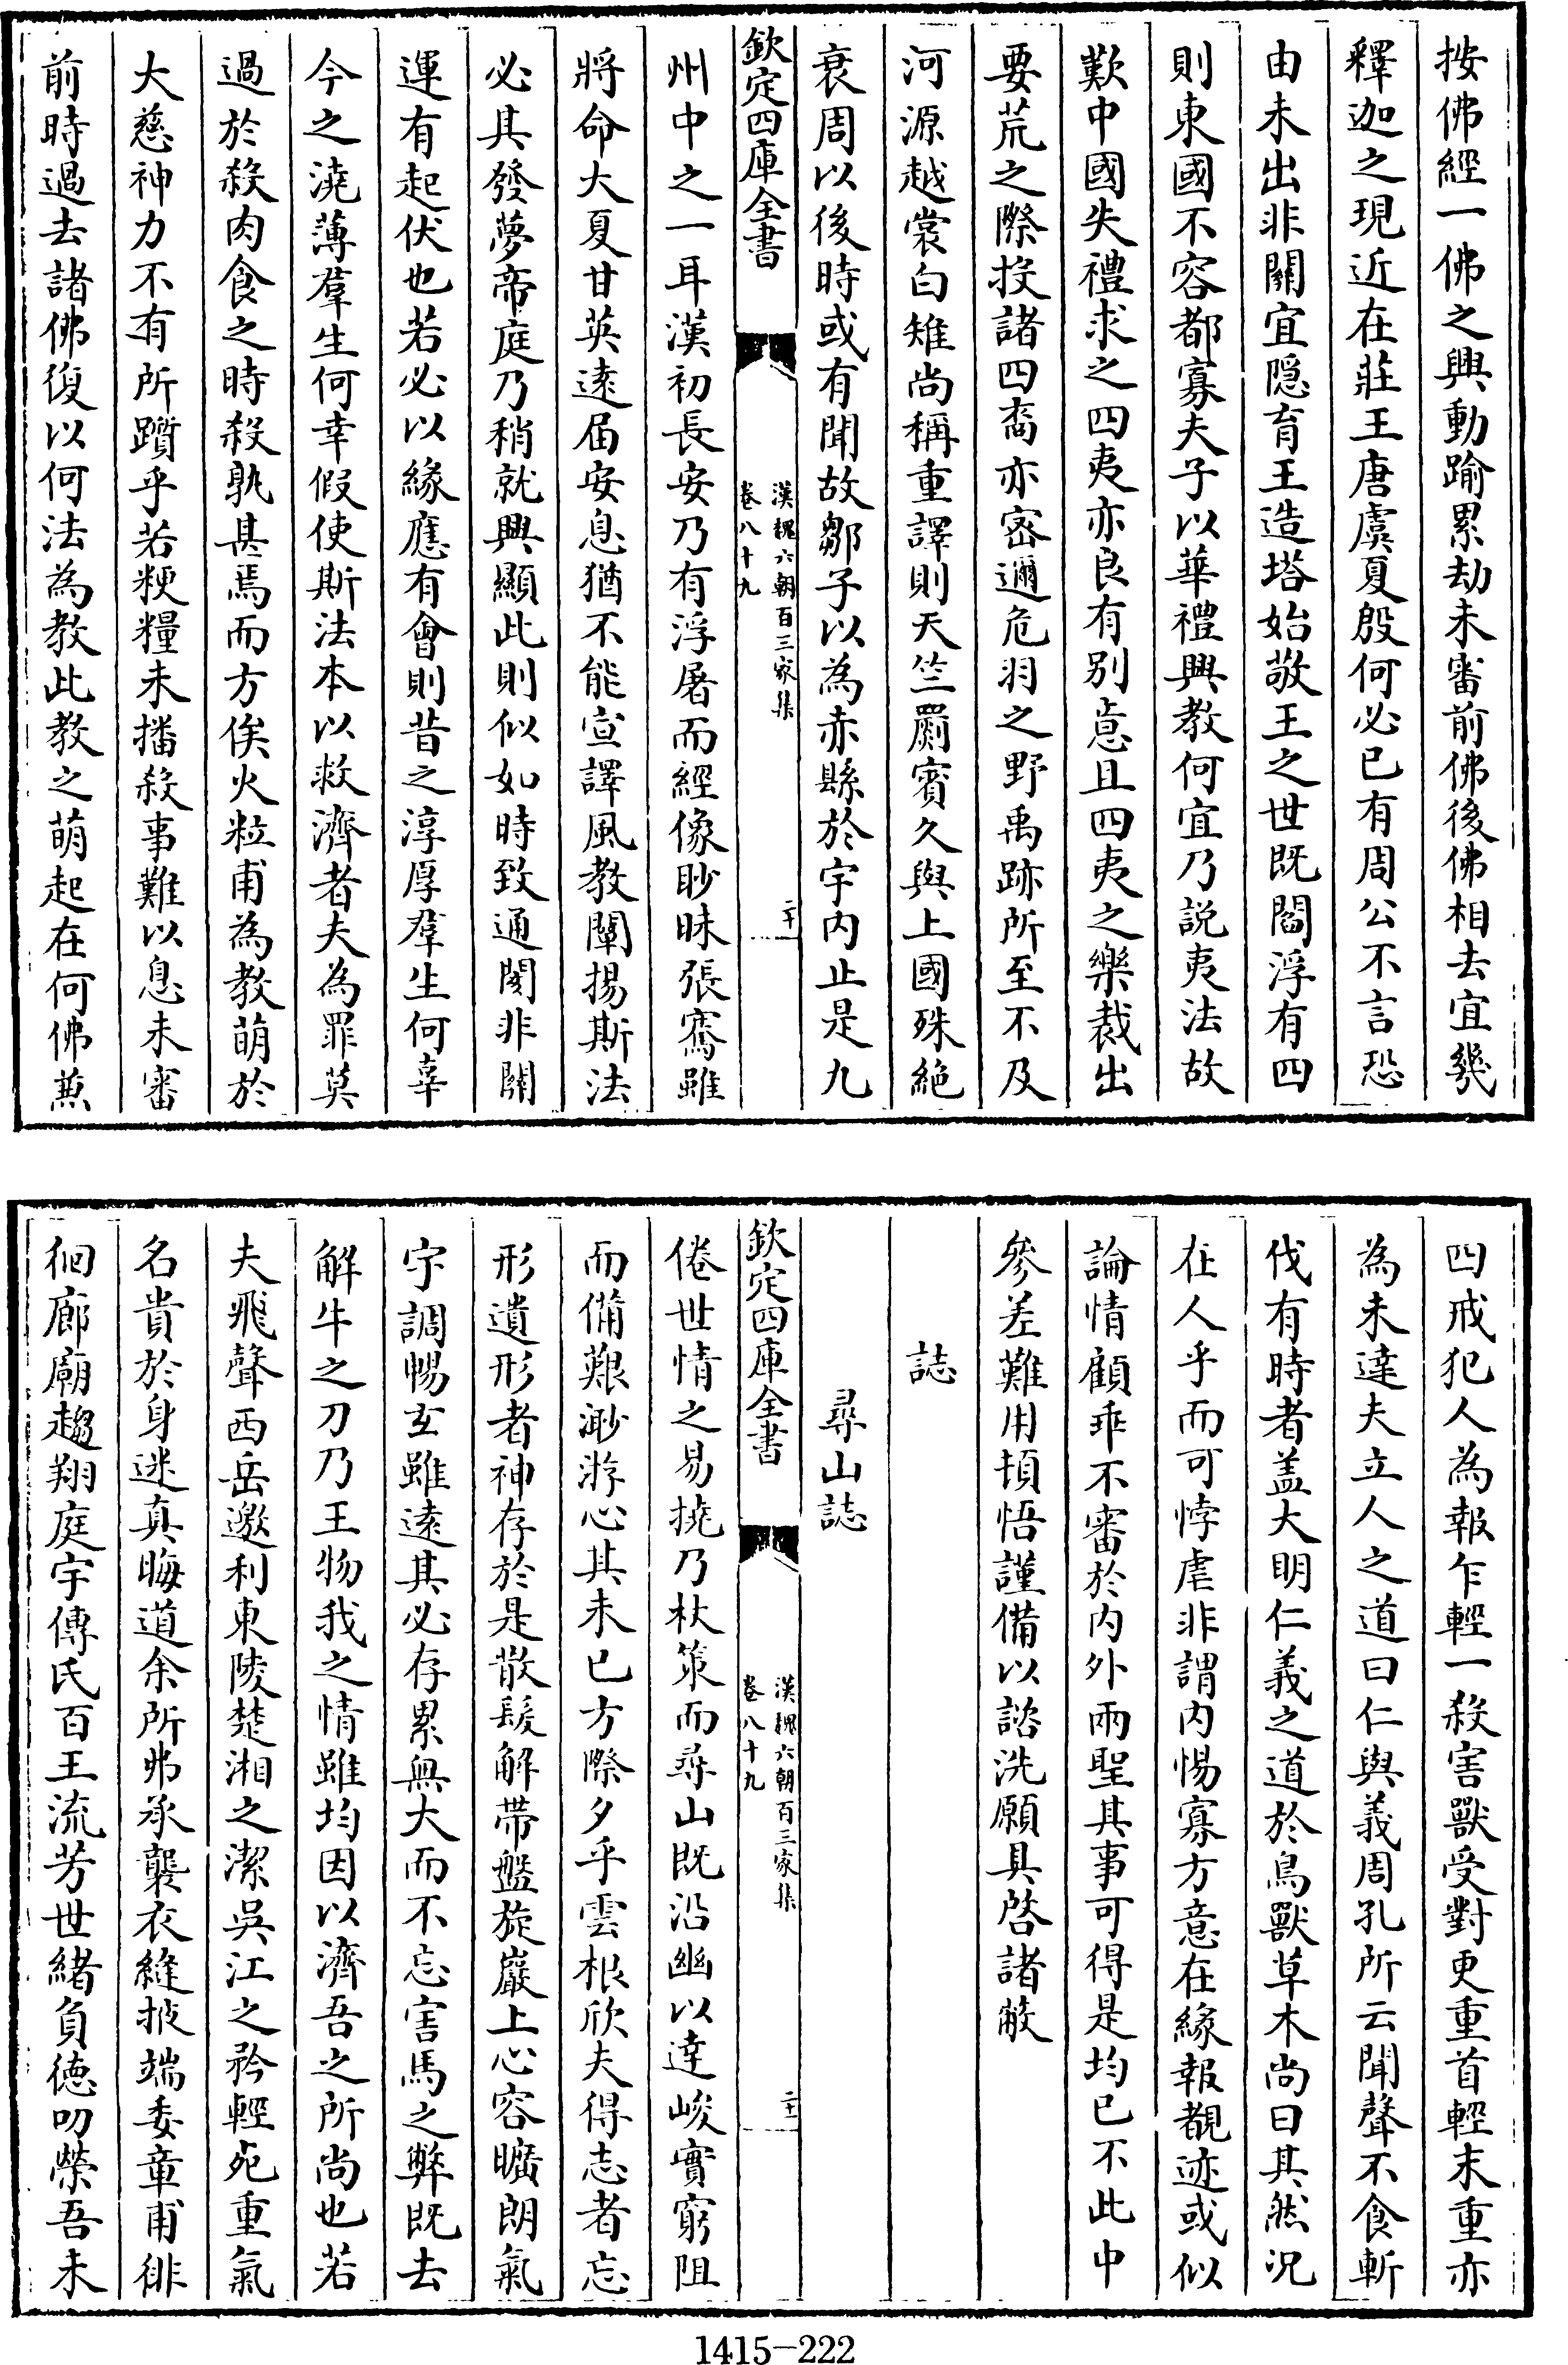 按佛經一佛之興動踰累劫未審前佛後佛相去宜幾
釋迦之現近在莊王唐虞夏殷何必已有周公不言恐
由未出非關宜隠育王造塔始敬王之世既閻浮有四
則東國不容都寡夫子以華禮興教何宜乃説夷法故
歎中國失禮求之四夷亦良有别意且四夷之樂裁出
要荒之際投諸四裔亦密邇危羽之野禹跡所至不及
河源越裳白雉尚稱重譯則天竺罽賓久與上國殊絶
衰周以後時或有聞故鄒子以為赤縣於宇内止是九
欽定四庫全書
漢魏六朝百三家集
卷八十九
二十
州中之一耳漢初長安乃有浮屠而經像眇昧張騫雖
將命大夏甘英遠届安息猶不能宣譯風教闡揚斯法
必其發夢帝庭乃稍就興顯此則似如時致通閡非關
運有起伏也若必以緣應有會則昔之淳厚羣生何辜
今之澆薄羣生何幸假使斯法本以救濟者夫為罪莫
過於殺肉食之時殺孰甚焉而方俟火粒甫為教萌於
大慈神力不有所躓乎若粳糧未播殺事難以息未審
前時過去諸佛復以何法為教此教之萌起在何佛蕪
四戒犯人為報乍輕一殺害獸受對更重首輕末重亦
為未達夫立人之道曰仁與義周孔所云聞聲不食斬
伐有時者盖大明仁義之道於鳥獸草木尚曰其然況
在人乎而可悖虐非謂内惕寡方意在緣報覩迹或似
論情顧乖不審於内外兩聖其事可得是均已不此中
參差難用頓悟謹備以諮洗願具啓諸蔽
誌
尋山誌
欽定四庫全書
漢魏六朝百三家集
卷八十九
二十一
倦世情之易撓乃杖策而尋山既沿幽以達峻實窮阻
而備艱渺游心其未已方際夕乎雲根欣夫得志者忘
形遺形者神存於是散髮解帶盤旋巖上心容曠朗氣
宇調暢玄雖遠其必存累無大而不忘害馬之弊既去
解牛之刀乃王物我之情雖均因以濟吾之所尚也若
夫飛聲西岳邀利東陵楚湘之潔吳江之矜輕死重氣
名貴於身迷真晦道余所弗承襲衣縫掖端委章甫徘
徊廊廟趨翔庭宇傳氏百王流芳世緒負德叨榮吾未
1415-222